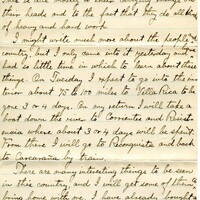 heads and to the fact that they do all kinds
of heavy and hard work.
I might write much more about the people &
country, but I only came into it yesterday and
had so little time in which to learn about these
things. On Tuesday I expect to go into the in-
terior about 75 to 100 miles to Villa Rica to be
gone 3 or 4 days. On my return I will take a
boat down the river to Corrientes and Resist-
encia where about 3 or 4 days will be spent.
From there I will go to Reconquista and back
to Carcarañá by train.
There are many interesting things to be seen
in this country, and I will get some of them to
bring home with me. I have already bought a